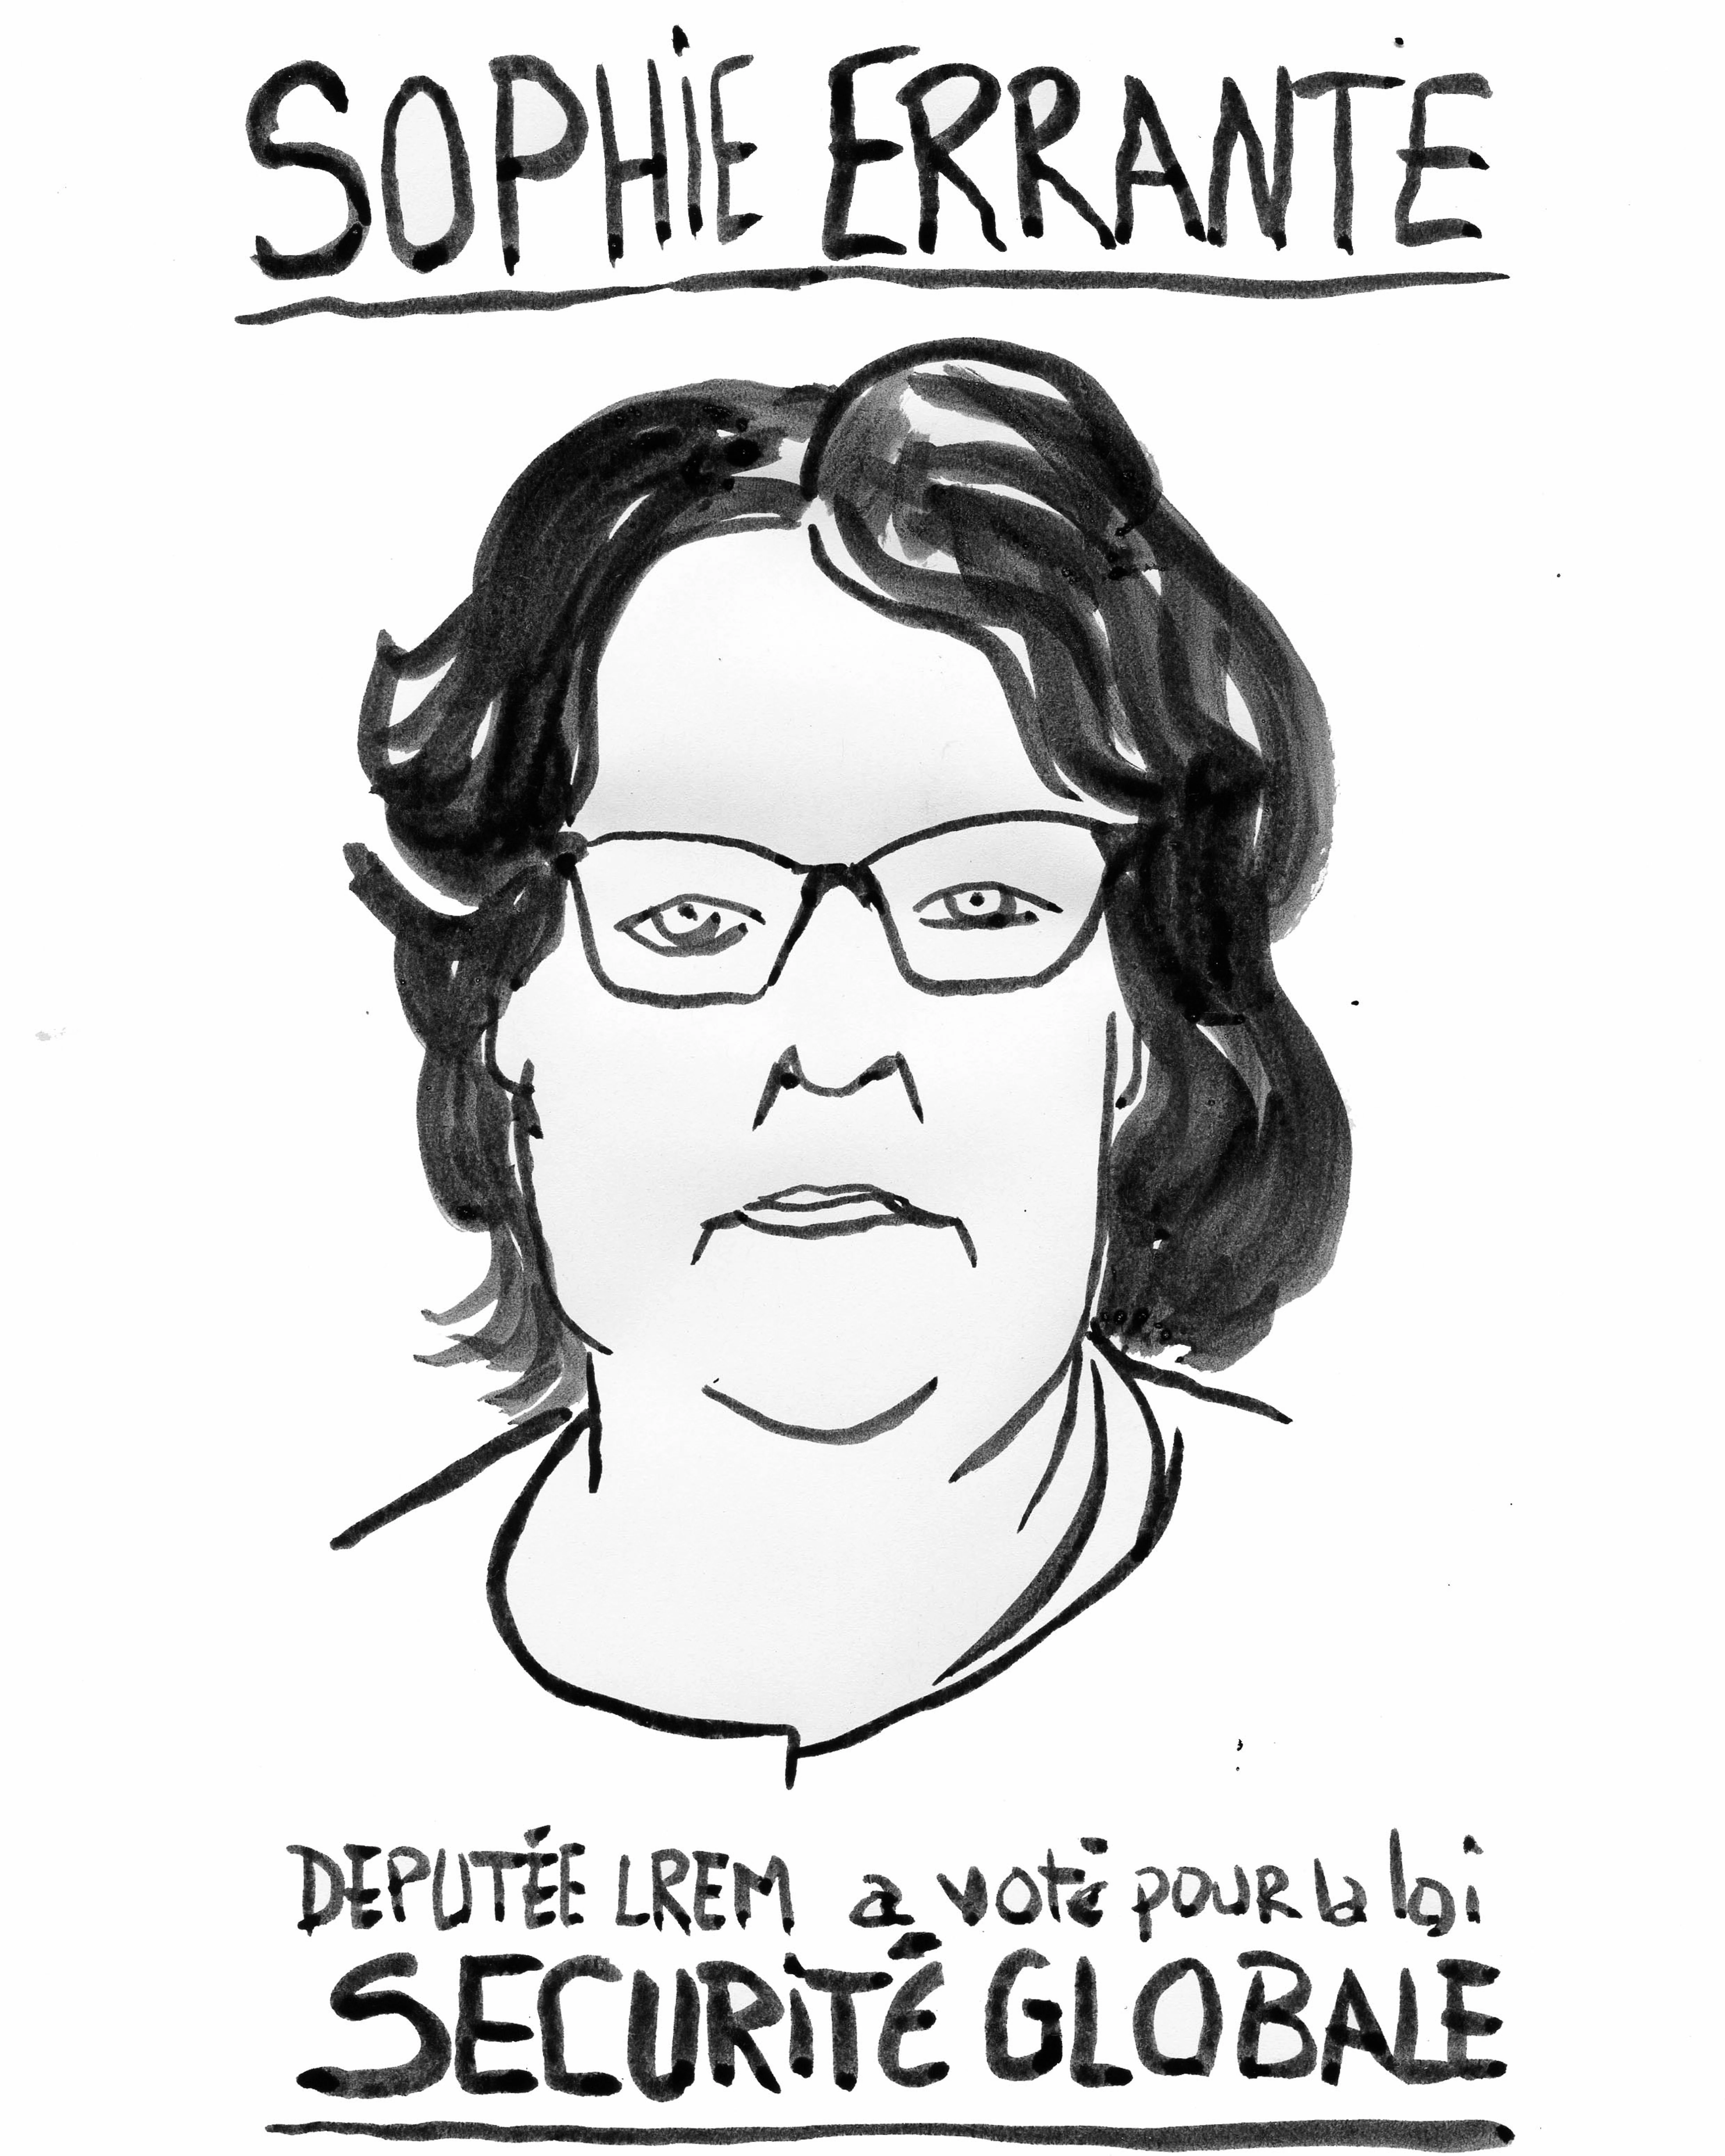 SOPHiE ERRANTE
DEPUTÉE LREM a voté pour la loi
SECURiTÉ GLOBALE